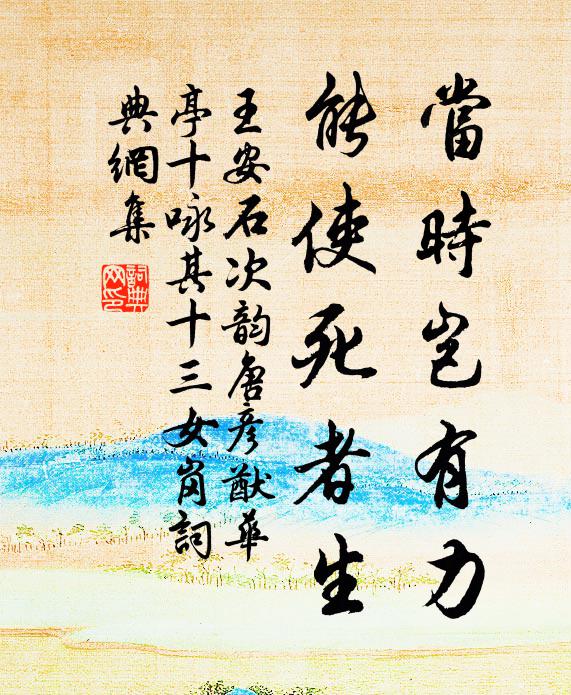 當時豈有力
能使死者生
王安石次韵唐彥猷華
亭十咏其十三女岗詞
典網集
詞典网印